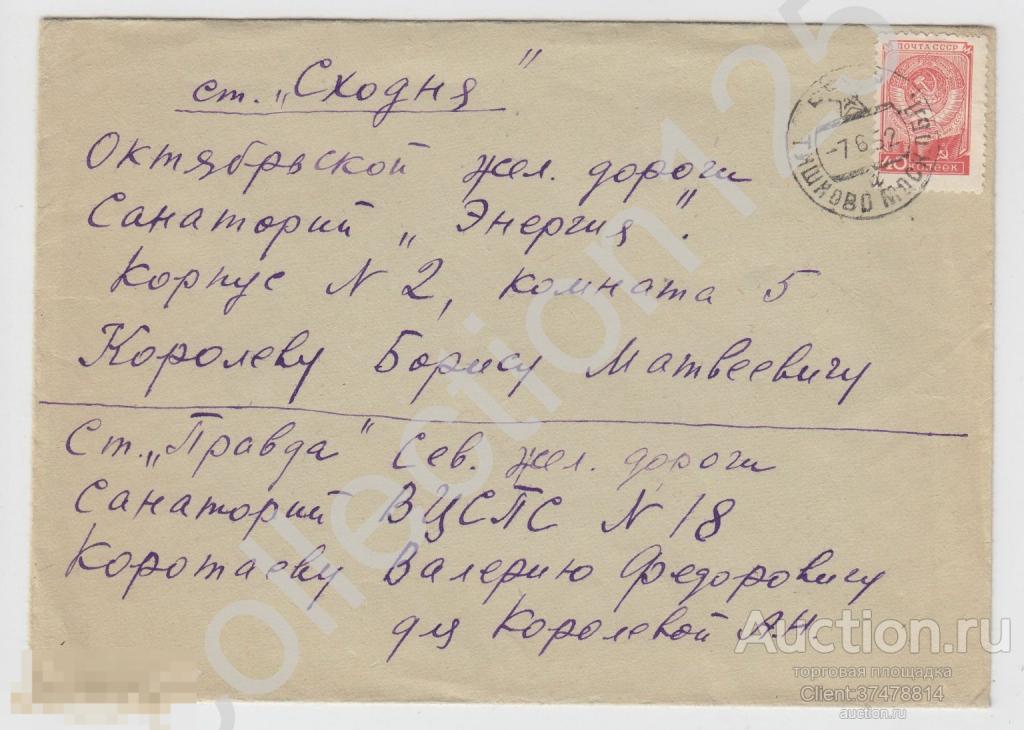 ст. „Сходня"
Октябрьской жел. дороги
Санаторий „Энергия".
Корпус N 2, комната 5
Королеву Борису Матвеевичу
Ст. „Правда" Сев. жел. дороги
Санаторий ВЦСПС N 18
Коротаеву Валерию Федоровичу
для Королевой А.Н
ПОЧТА СССР
КОПЕЕК
-7 6 52
ТИШКОВО МОСК. ОБЛ.
collection125
Auction.ru
торговая площадка
Client:37478814
auction.ru